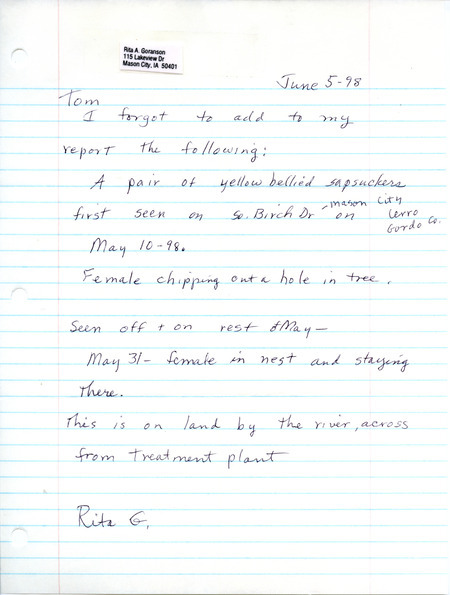 Rita A. Goranson
115 Lakeview Dr
Mason City, IA 50401
June 5-98
Tom
I forgot to add to my
report the following:
A pair of yellow bellied sapsuckers
first seen on So. Birch Dr - Mason City on Cerro Gordo Co.
May 10-98.
Female chipping out a hole in tree.
Seen off + on rest of May—
May 31- female in nest and staying
there.
This is on land by the river, across
from treatment plant
Rita G.